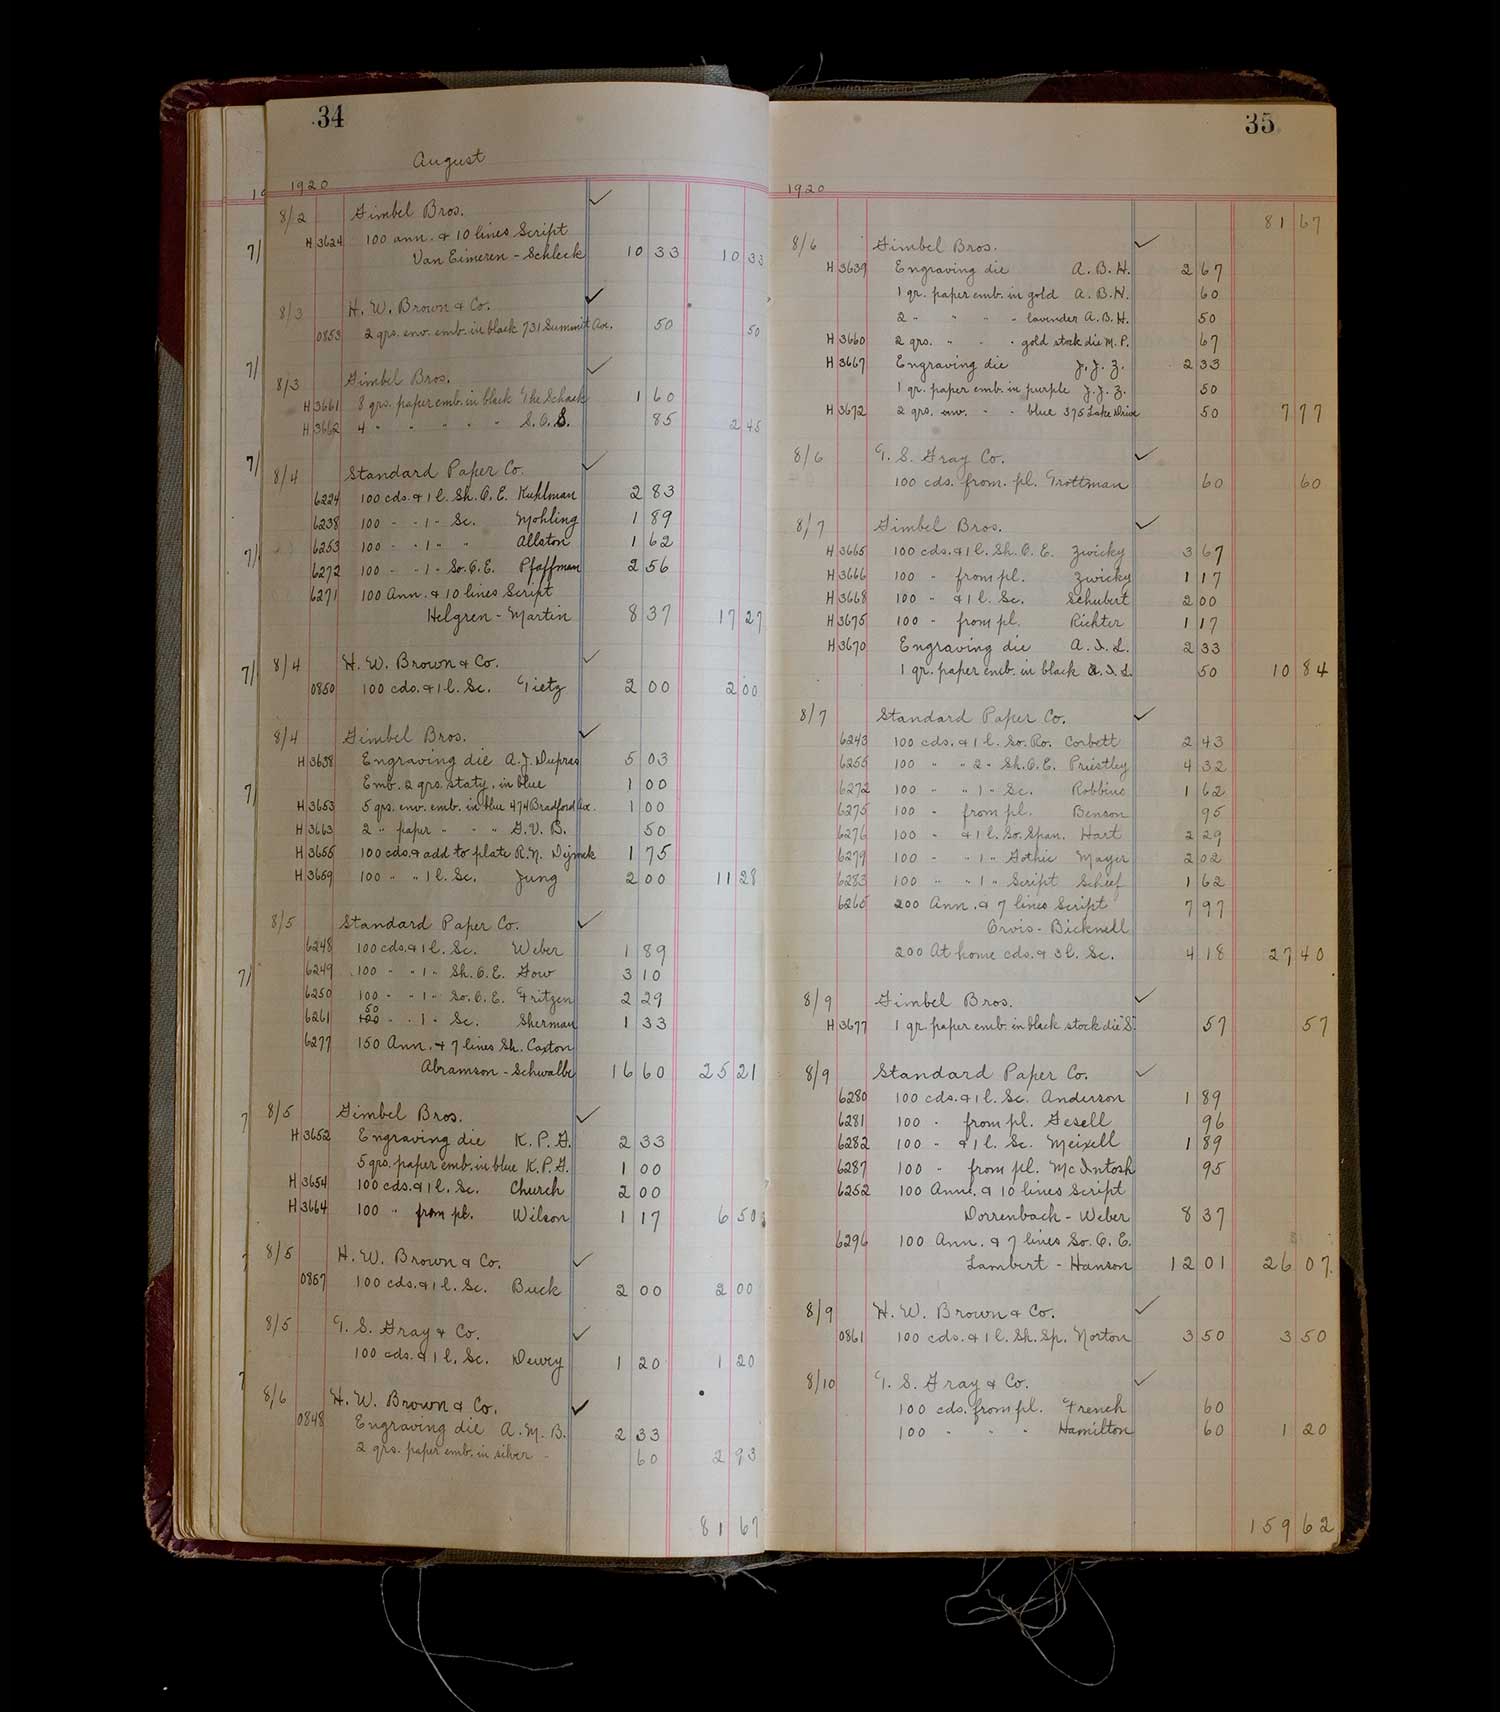 34
August
1920
8/2 Gimbel Bros. ✓
H 3624 100 ann. & 10 lines Script
Van Eimeren - Schleck 10 33 10 33
8/3 H. W. Brown & Co. ✓
0853 2 qrs. env. emb. in black 731 Summit Ave. 50 50
8/3 Gimbel Bros. ✓
H 3661 8 qrs. paper emb. in black The Schack 1 60
H 3662 4 " " " " " S.O.S. 85 2 45
8/4 Standard Paper Co. ✓
6224 100 cds. & 1 l. Sh. O. E. Kuhlman 2 83
6238 100 - - 1 - Sc. Mohling 1 89
6253 100 - - 1 - " Allston 1 62
6272 100 - - 1 - So. O. E. Pfaffman 2 56
6271 100 Ann. & 10 lines Script
Helgren - Martin 8 37 17 27
8/4 H. W. Brown & Co. ✓
0850 100 cds. & 1 l. Sc. Tietz 2 00 2 00
8/4 Gimbel Bros. ✓
H 3638 Engraving die A. J. Dupras 5 03
Emb. 2 qrs. staty. in blue 1 00
H 3653 5 qrs. env. emb. in blue 474 Bradford Ave. 1 00
H 3663 2 " paper " - " G. V. B. 50
H 3655 100 cds. & add to plate R. N. Dejmek 1 75
H 3659 100 " " 1 l. Sc. Jung 2 00 11 28
8/5 Standard Paper Co. ✓
6248 100 cds. & 1 l. Sc. Weber 1 89
6249 100 - - 1 - Sh. O. E. Gow 3 10
6250 100 - - 1 - So. O. E. Fritzen 2 29
6261 50 - - 1 - Sc. Sherman 1 33
6277 150 Ann. & 7 lines Sh. Caxton
Abramson - Schwalbe 16 60 25 21
8/5 Gimbel Bros. ✓
H 3652 Engraving die K. P. G. 2 33
5 qrs. paper emb. in blue K. P. G. 1 00
H 3654 100 cds. & 1 l. Sc. Church 2 00
H 3664 100 " from pl. Wilson 1 17 6 50
8/5 H. W. Brown & Co. ✓
0857 100 cds. & 1 l. Sc. Buck 2 00 2 00
8/5 T. S. Gray & Co. ✓
100 cds. & 1 l. Sc. Dewey 1 20 1 20
8/6 H. W. Brown & Co. ✓
0848 Engraving die A. M. B. 2 33
2 qrs. paper emb. in silver - 60 2 93
81 67
35
1920
81 67
8/6 Gimbel Bros. ✓
H 3639 Engraving die A. B. H. 2 67
1 qr. paper emb. in gold A. B. H. 60
2 " " " - lavender A. B. H. 50
H 3660 2 qrs. " - - gold stock die M. P. 67
H 3667 Engraving die J. J. Z. 2 33
1 qr. paper emb. in purple J. J. Z. 50
H 3672 2 qrs. env. - - blue 375 Lake Drive 50 7 77
8/6 T. S. Gray Co. ✓
100 cds. from. pl. Trottman 60 60
8/7 Gimbel Bros. ✓
H 3665 100 cds. & 1 l. Sh. O. E. Zwicky 3 67
H 3666 100 - from pl. Zwicky 1 17
H 3668 100 - & 1 l. Sc. Schubert 2 00
H 3675 100 - from pl. Richter 1 17
H 3670 Engraving die A. I. L. 2 33
1 qr. paper emb. in black A. I. L. 50 10 84
8/7 Standard Paper Co. ✓
6243 100 cds. & 1 l. So. Ro. Corbett 2 43
6255 100 " " 2 - Sh. O. E. Priestley 4 32
6272 100 - " 1 - Sc. Robbins 1 62
6275 100 - from pl. Benson 95
6276 100 - & 1 l. So. Span. Hart 2 29
6279 100 - " 1 " Gothic Mayer 2 02
6283 100 " " 1 " Script Scheef 1 62
6265 200 Ann. & 7 lines Script 7 97
Orvis - Bicknell
200 At home cds. & 3 l. Sc. 4 18 27 40
8/9 Gimbel Bros. ✓
H 3677 1 qr. paper emb. in black stock die "S" 57 57
8/9 Standard Paper Co. ✓
6280 100 cds. & 1 l. Sc. Anderson 1 89
6281 100 - from pl. Gesell 96
6282 100 - & 1 l. Sc. Meixell 1 89
6287 100 - from pl. McIntosh 95
6252 100 Ann. & 10 lines Script
Dorrenbach - Weber 8 37
6296 100 Ann. & 7 lines So. O. E.
Lambert - Hanson 12 01 26 07
8/9 H. W. Brown & Co. ✓
0861 100 cds. & 1 l. Sh. Sp. Norton 3 50 3 50
8/10 T. S. Gray & Co. ✓
100 cds. from pl. French 60
100 - - - Hamilton 60 1 20
159 62